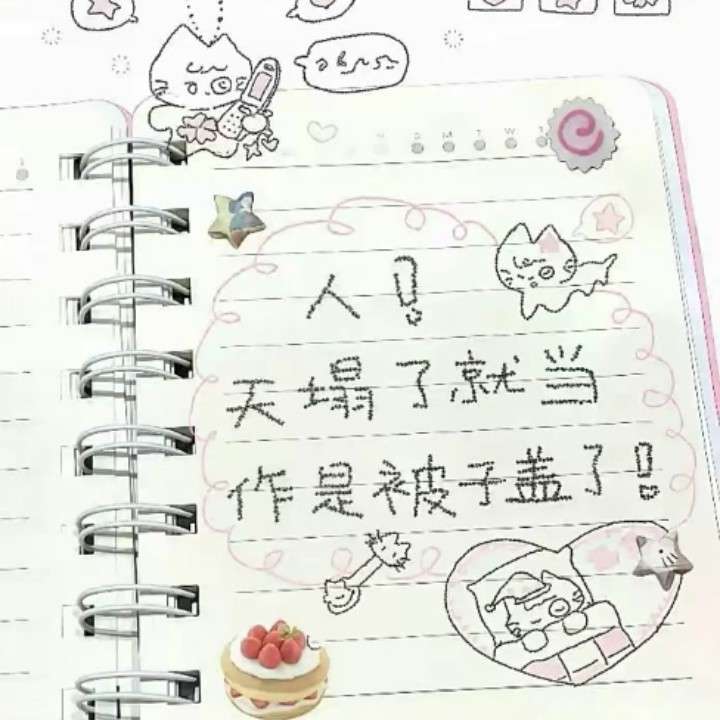 M T W
人！
天塌了就当
作是被子盖了！